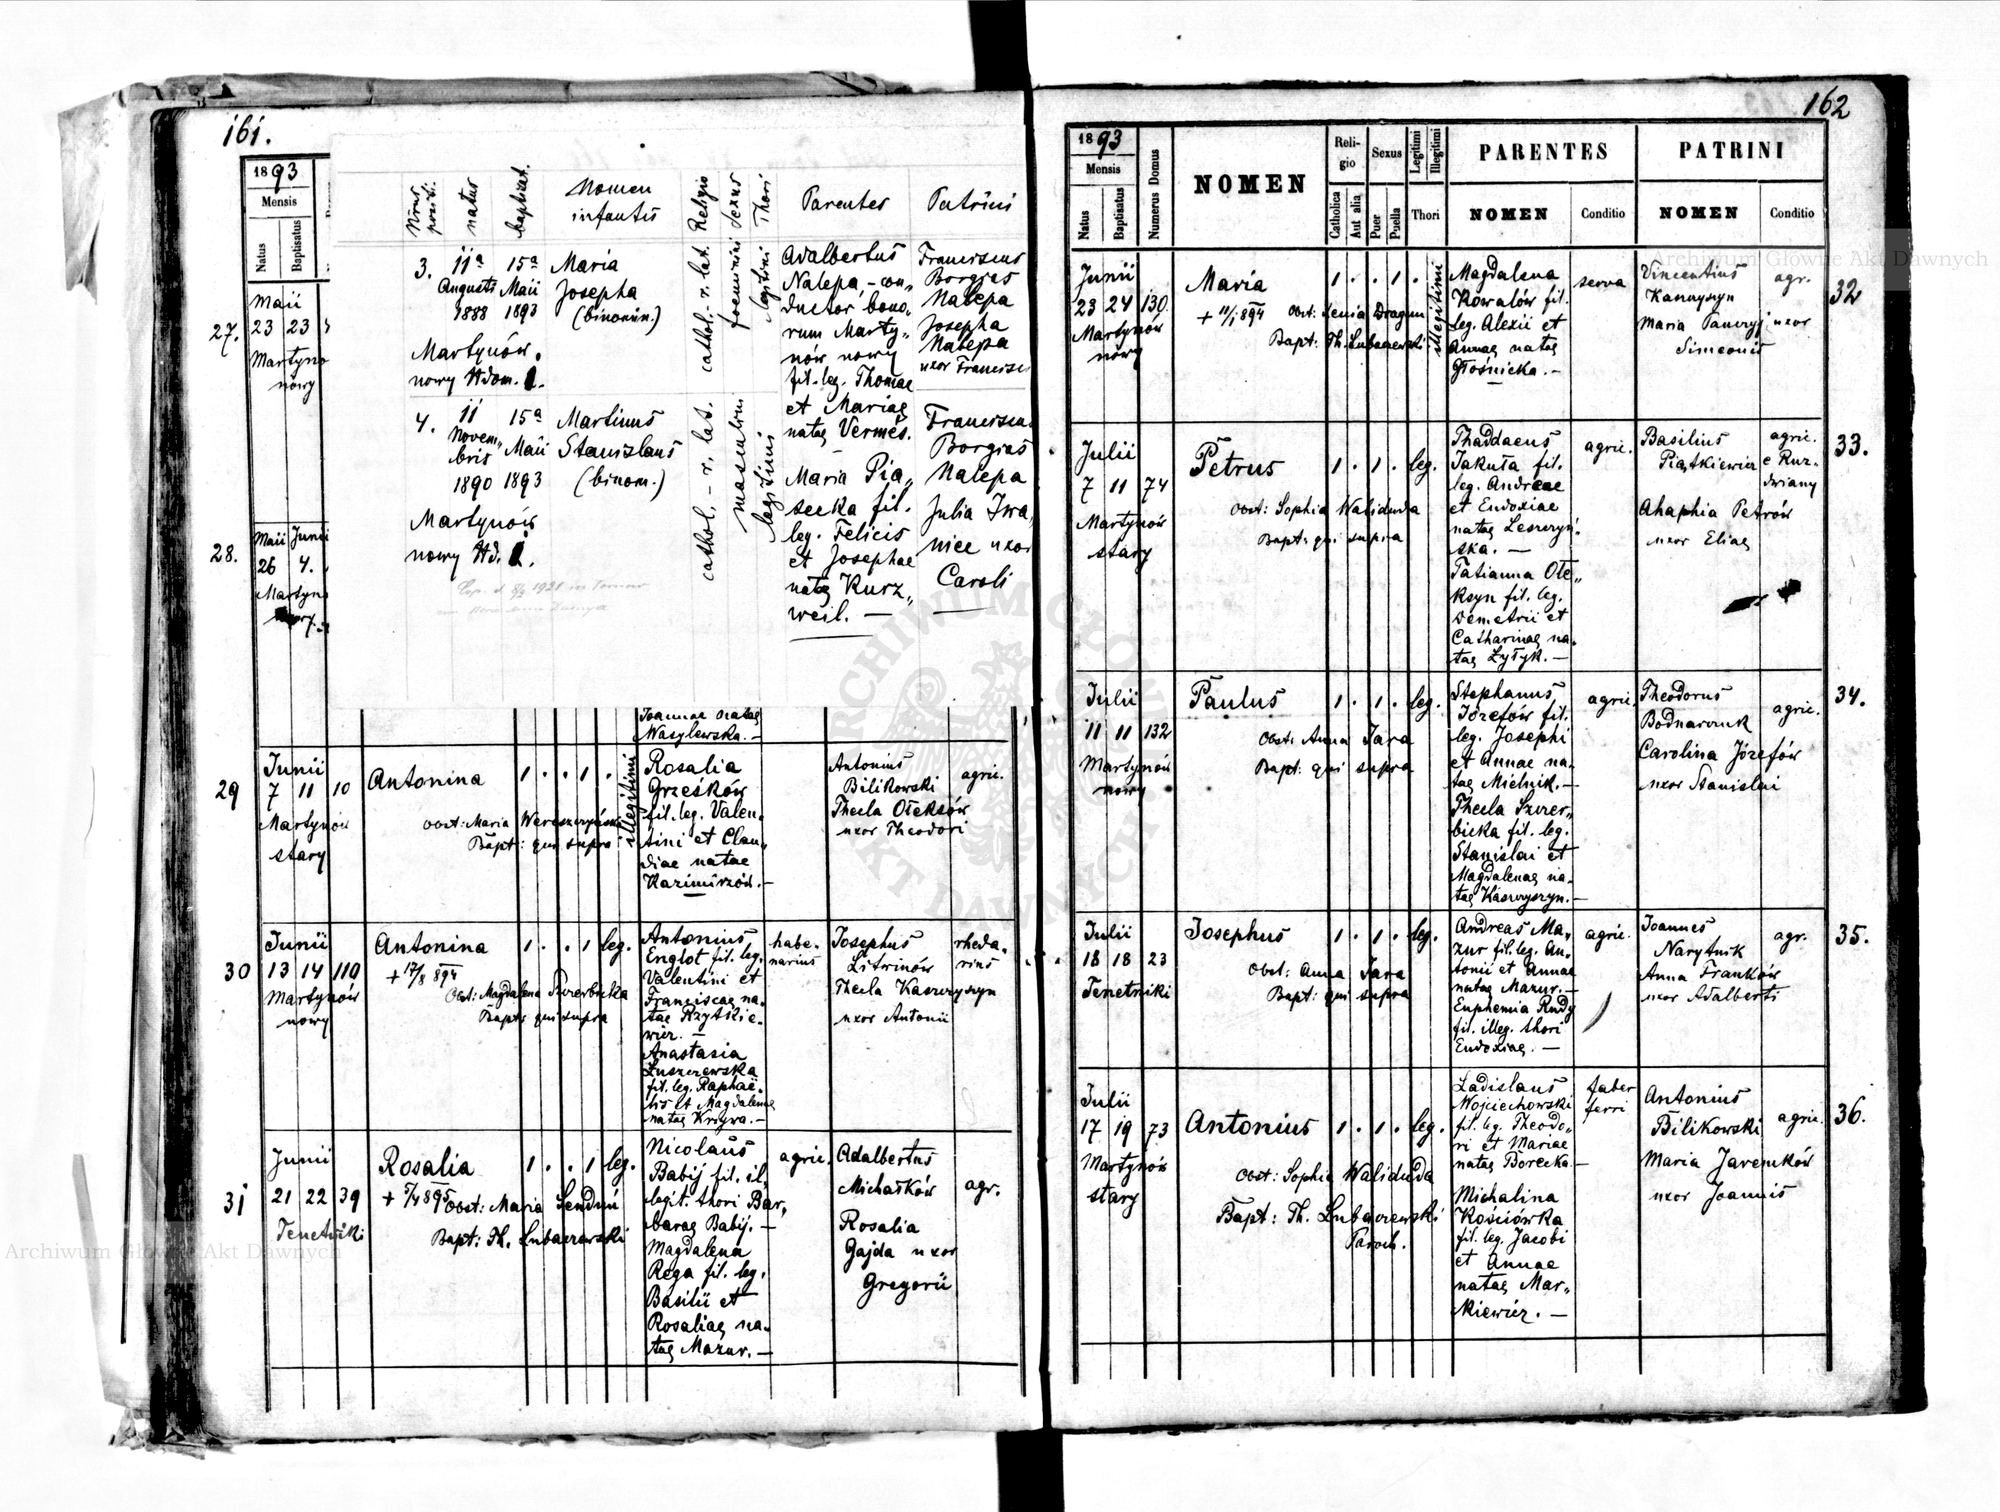 161.
1893
Mensis
Natus
Baptisatus
27.
Maii
23 23
Martyno
nowy
28.
Maii Junii
26 4.
Martyn
Nrus
natus
baptizat.
Nomen
infantis
Religio
Sexus
Thori
Parentes
Patrini
3.
11a 15a
Augusti Maii
1888 1893
Martynów
nowy Ndom. 1.
Maria
Josepha
(binomin.)
cathol. - r. lat.
foeminini
legitimi
Adalbertus
Nalepa, - con„
ductor bono„
rum Marty„
nów nowy
fil. leg. Thomae
et Mariae
natae Vermés.
Franciscus
Borgias
Nalepa
Josepha
Nalepa
uxor Francisci
4.
11 15a
Novem„ Maii
bris
1890 1893
Martynów
nowy Nd. 1.
Martinus
Stanislaus
(binom.)
cathol. - r. lat.
masculini
legitimi
Maria Pia„
secka fil.
leg. Felicis
et Josephae
natae Kurz„
weil. —
Franciscus
Borgias
Nalepa
Julia Iwa„
nice uxor
Caroli
Joannae natae
Wasylewska. —
29
Junii
7 11 10
Martynów
stary
Antonina
1 . . 1 .
illegitimi
Obst: Maria
Bapt: qui supra
Rosalia
Grześków
fil. leg. Valen„
tini et Clau„
diae natae
Kazimirzów. —
Antonius
Bilikowski
Thecla Oleksów
uxor Theodori
agric.
30
Junii
13 14 119
Martynów
nowy
Antonina
+ 17/8 894
1 . . 1 leg.
Obst: Magdalena Szczerbicka
Bapt: qui supra
Antonius
Englot fil. leg.
Valentini et
Franziscae na„
tae Krzyśkie„
wicz. —
Anastasia
Łuszczewska
fil. leg. Raphae„
lis et Magdalenae
natae Krzywa. —
habe„
narius
Josephus
Litwinów
Thecla Kaszczyszyn
uxor Antonii
rheda„
rius
31
Junii
21 22 39
Tenetniki
Rosalia
1 . . 1 leg.
Obst: Maria Senduń
Bapt: Th. Lubaczewski
Nicolaus
Babij fil. il„
legit. thori Bar„
barae Babij. —
Magdalena
Rega fil. leg.
Basilii et
Rosaliae na„
tae Mazur. —
agric.
Adalbertus
Michałków
Rosalia
Gajda uxor
Gregorii
agr.
162
1893
Mensis
Natus
Baptisatus
Numerus Domus
NOMEN
Reli-
gio
Catholica
Aut alia
Sexus
Puer
Puella
Legitimi
Illegitimi
Thori
PARENTES
NOMEN Conditio
PATRINI
NOMEN Conditio
Junii
23 24 130.
Martynów
nowy
Maria
+ 11/1 894
1 . . 1 .
illegitimi
Obst: Xenia Dragun
Bapt: Th. Lubaczewski
Magdalena
Kowalów fil.
leg. Alexii et
Annae natae
Głośnicka. —
serva
Vincentius
Maria
uxor
Simeonis
agr.
32
Julii
7 11 74
Martynów
stary
Petrus
1 . 1 . leg.
Obst: Sophia Waliduda
Bapt: qui supra
Thaddaeus
Jakuta fil.
leg. Andreae
et Eudoxiae
natae Leszczyń„
ska. —
Tatianna Ole„
ksyn fil. leg.
Demetrii et
Catharinae na„
tae Łytyk. —
agric.
Basilius
Piątkiewicz
Ahaphia Petrów
uxor Eliae
agric.
e Ruz„
dwiany
33.
Julii
11 11 132
Martynów
nowy
Paulus
1 . 1 . leg.
Obst: Anna Tara
Bapt: qui supra
Stephanus
Józefów fil.
leg. Josephi
et Annae na„
tae Mielnik. —
Thecla Szczer„
bicka fil. leg.
Stanislai et
Magdalenae na„
tae Kaszczyszyn. —
agric.
Theodorus
Bodnarczuk
Carolina Józefów
uxor Stanislai
agric.
34.
Julii
18 18 23
Tenetniki
Josephus
1 . 1 . leg.
Obst: Anna Tara
Bapt: qui supra
Andreas Ma„
zur fil. leg. An„
tonii et Annae
natae Mazur. —
Euphemia Rudy
fil. illeg. thori
Eudoxiae. —
agric.
Joannes
Narytnik
Anna Franków
uxor Adalberti
agr.
35.
Julii
17 19 73
Martynów
stary
Antonius
1 . 1 . leg.
Obst: Sophia Waliduda
Bapt: Th. Lubaczewski
Paroch.
Ladislaus
Wojciechowski
fil. leg. Theodo„
ri et Mariae
natae Borecka. —
Michalina
Kościówka
fil. leg. Jacobi
et Annae
natae Mar„
kiewicz. —
faber
ferri
Antonius
Bilikowski
Maria Jaremków
uxor Joannis
agric.
36.
ARCHIWUM GŁÓWNE AKT DAWNYCH
Archiwum Główne Akt Dawnych
Archiwum Główne Akt Dawnych